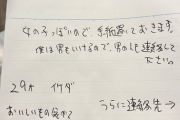 女の子っぽいので 手紙置いておきます。
僕は男もいけるので、男の人も連絡して
下さい。
29才 イケダ
おいしいもの食か?
うらに連絡先→